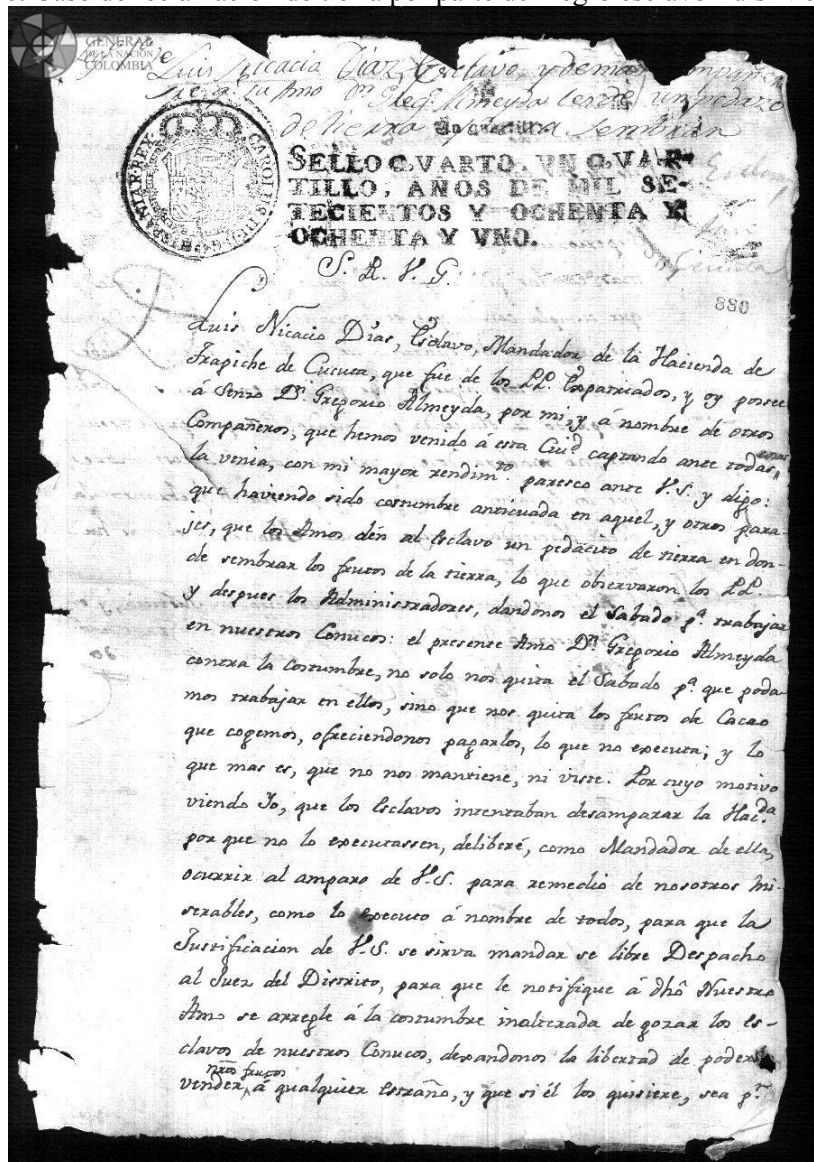 GENERAL
DE LA NACIÓN
COLOMBIA
Luis Nicacio Díaz, Esclavo, y demas
su Amo Dn Greg.o Almeyda un pedazo
de tierra para sembrar
CAROLUS III D G HISPANIAR REX
SELLO QVARTO, VN QVAR-
TILLO, AÑOS DE MIL SE-
TECIENTOS Y OCHENTA Y
OCHENTA Y VNO.
S. R. V. G.
880
Luis Nicacio Dias, Esclavo, Mandador de la Hacienda de
Trapiche de Cucuta, que fue de los PP. Expatriados, y oy posee
á Senzo Dn. Gregorio Almeyda, por mi, y á nombre de otros
Compañeros, que hemos venido a esta Ciud captando ante todas cosas
la venia, con mi mayor rendim.to paresco ante V.S. y digo:
que haviendo sido costumbre anticuada en aquel, y otros para-
jes, que los Amos dén al Esclavo un pedacito de tierra en don-
de sembrar los frutos de la tierra, lo que observaron los PP.
y despues los Administradores, dandonos el Sabado p.a trabajar
en nuestros Conucos: el presente Amo Dn. Gregorio Almeyda
contra la costumbre, no solo nos quita el Sabado p.a que poda-
mos trabajar en ellos, sino que nos quita los frutos de Cacao
que cogemos, ofreciendonos pagarlos, lo que no executa; y lo
que mas es, que no nos mantiene, ni viste. Por cuyo motivo
viendo Yo, que los Esclavos intentaban desamparar la Hac.da
por que no lo executassen, deliberé, como Mandador de ella,
ocurrir al amparo de V.S. para remedio de nosotros mi-
serables, como lo executo á nombre de todos, para que la
Justificacion de V.S. se sirva mandar se libre Despacho
al Juez del Distrito, para que le notifique á dhô Nuestro
Amo se arregle á la costumbre inalterada de gozar los es-
clavos de nuestros Conucos, dexandonos la libertad de poder
vender nros frutos á qualquier Estraño, y que si él los quisiere, sea p.r